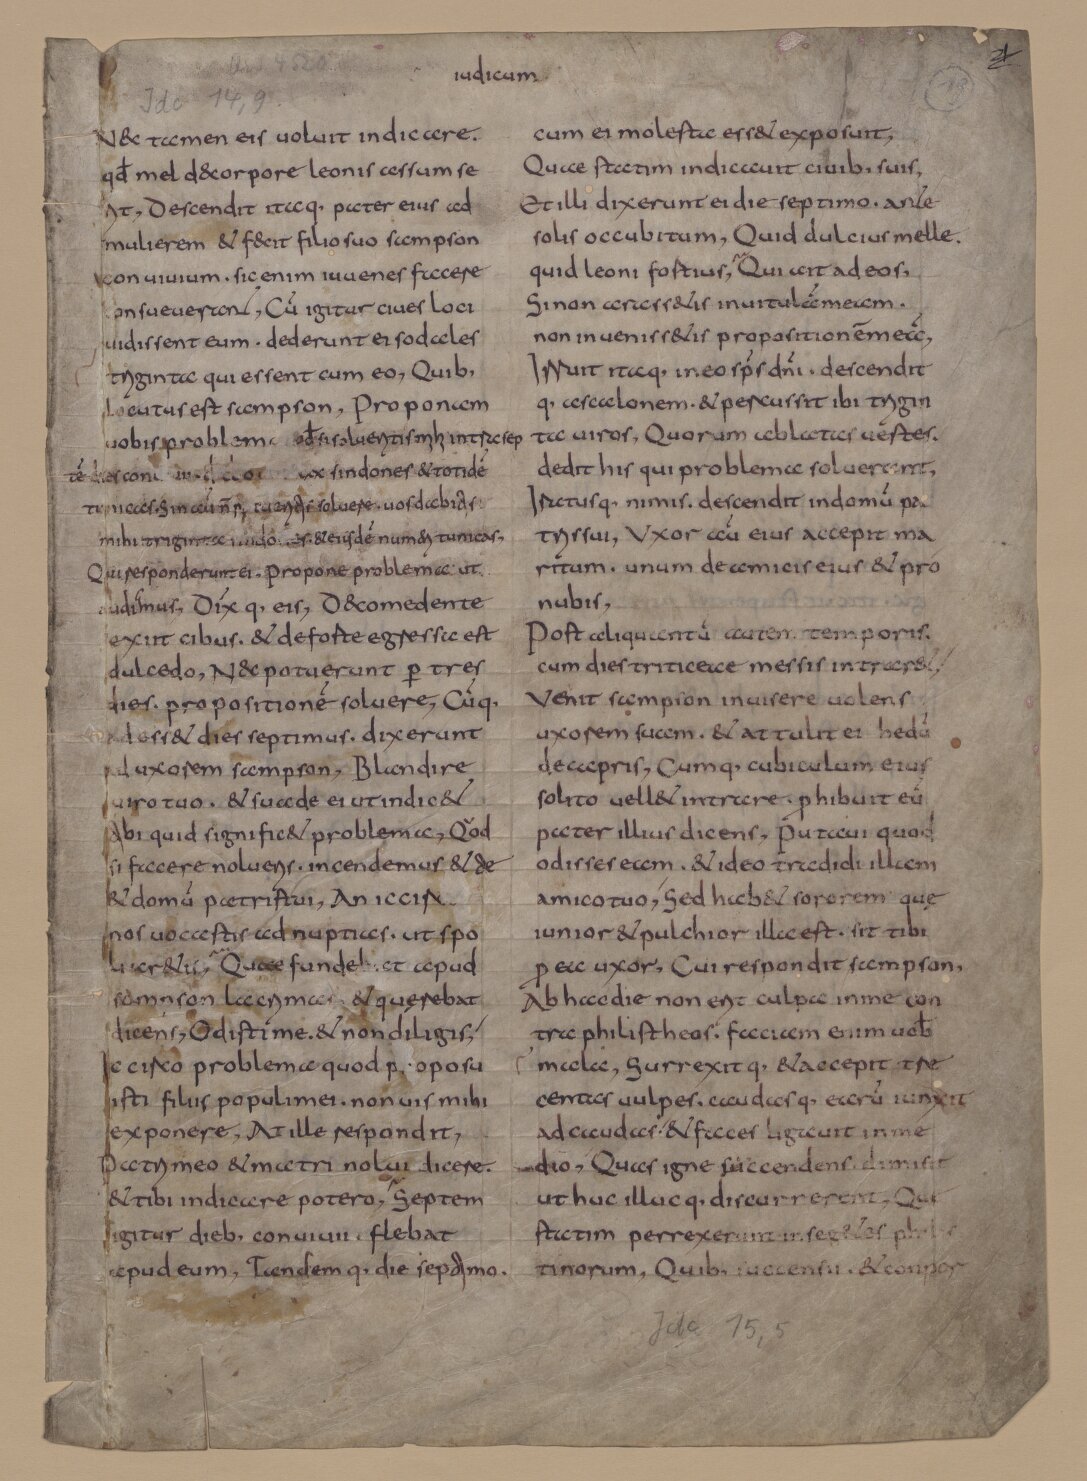 iudicum
Jdc 14,9.
N& tamen eis uoluit indicare.
qđ mel d&corpore leonis assumse
At, Descendit itaq. pater eius ad
mulierem & fecit filio suo sampson
conuiuium. sic enim iuuenes facere
consueuerant, Cū igitur ciues loci
uidissent eum. dederunt ei sodales
triginta qui essent cum eo, Quib.
locutus est sampson, Proponam
uobis problema qđ si solueritis mihi intra sep
tē dies conuiuii dabo uobis xxx sindones & totidē
tunicas, Sin autū non potueritis soluere. uos dabitis
mihi triginta sindones. & eiusdē numeri tunicas,
Qui responderunt ei. Propone problema ut
audimus, Dixitq. eis, D&comedente
exiit cibus. & de forte egressa est
dulcedo, N&potuerunt ꝑ tres
dies. propositionē soluere, Cūq.
adess& dies septimus. dixerunt
ad uxorem sampson, Blandire
uiro tuo. & suade ei ut indic&
tibi quid signific& problema, Quod
si facere nolueris. incendemus & te
& domū patris tui, An iccirco
nos uocastis ad nuptias. ut spo
liar&is, Quae fundebat apud
sampson lacrymas. & querebat
dicens, Odisti me. & non diligis,
Iccirco problema quod proposu
isti filiis populi mei. non uis mihi
exponere, At ille respondit,
Patri meo & matri nolui dicere.
& tibi indicare potero, Septem
igitur dieb. conuiuii flebat
apud eum, Tandemq. die septimo.
cum ei molesta ess& exposuit,
Quae statim indicauit ciuib. suis,
Et illi dixerunt ei die septimo. ante
solis occubitum, Quid dulcius melle.
quid leoni fortius, Qui ait ad eos,
Si non arass&is in uitulā meam.
non inueniss&is propositionē meā,
Irruit itaq. in eo sps dni. descendit
q. ascalonem. & percussit ibi trigin
ta uiros, Quorum ablatas uestes.
dedit his qui problema soluerant,
Iratusq. nimis. descendit in domū pa
tris sui, Uxor aū eius accepit ma
ritum. unum de amicis eius & pro
nubis,
Post aliquantū autem temporis.
cum dies triticeae messis intrar&,
Venit sampson inuisere uolens
uxorem suam. & attulit ei hedū
de capris, Cumq. cubiculum eius
solito uell& intrare. ꝓhibuit eū
pater illius dicens, Putaui quod
odisses eam. & ideo tradidi illam
amico tuo, Sed hab& sororem quę
iunior & pulchior illa est. sit tibi
ꝓ ea uxor, Cui respondit sampson,
Ab hac die non erit culpa in me con
tra philistheos. faciam enim uob
mala, Surrexitq. & accepit tre
centas uulpes. caudasq. earū iunxit
ad caudas. & faces ligauit in me
dio, Quas igne succendens. dimisit
ut huc illucq. discurrerent, Que
statim perrexerunt in seg&es philis
tinorum, Quib. succensis. & conpor
Jdc 15,5